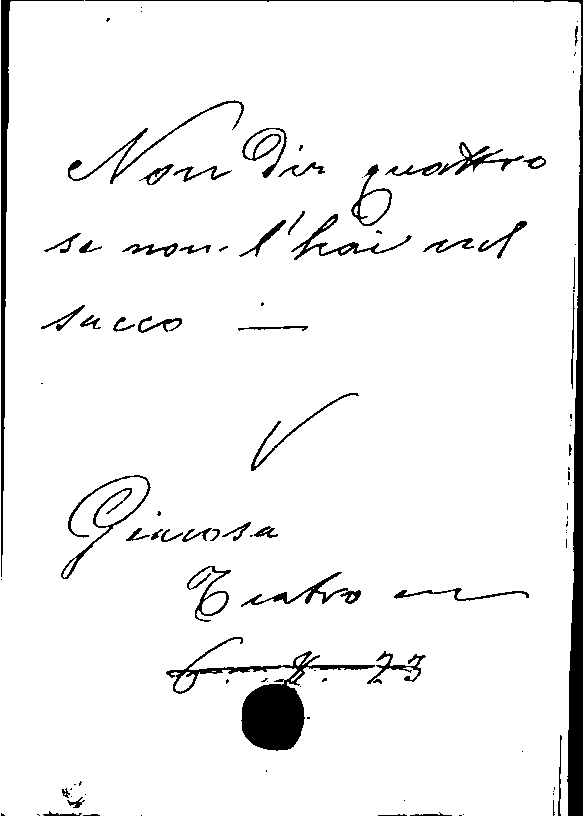 Non dir quattro
se non l'hai nel
sacco —
V
Giacosa
Teatro
6. K. 23